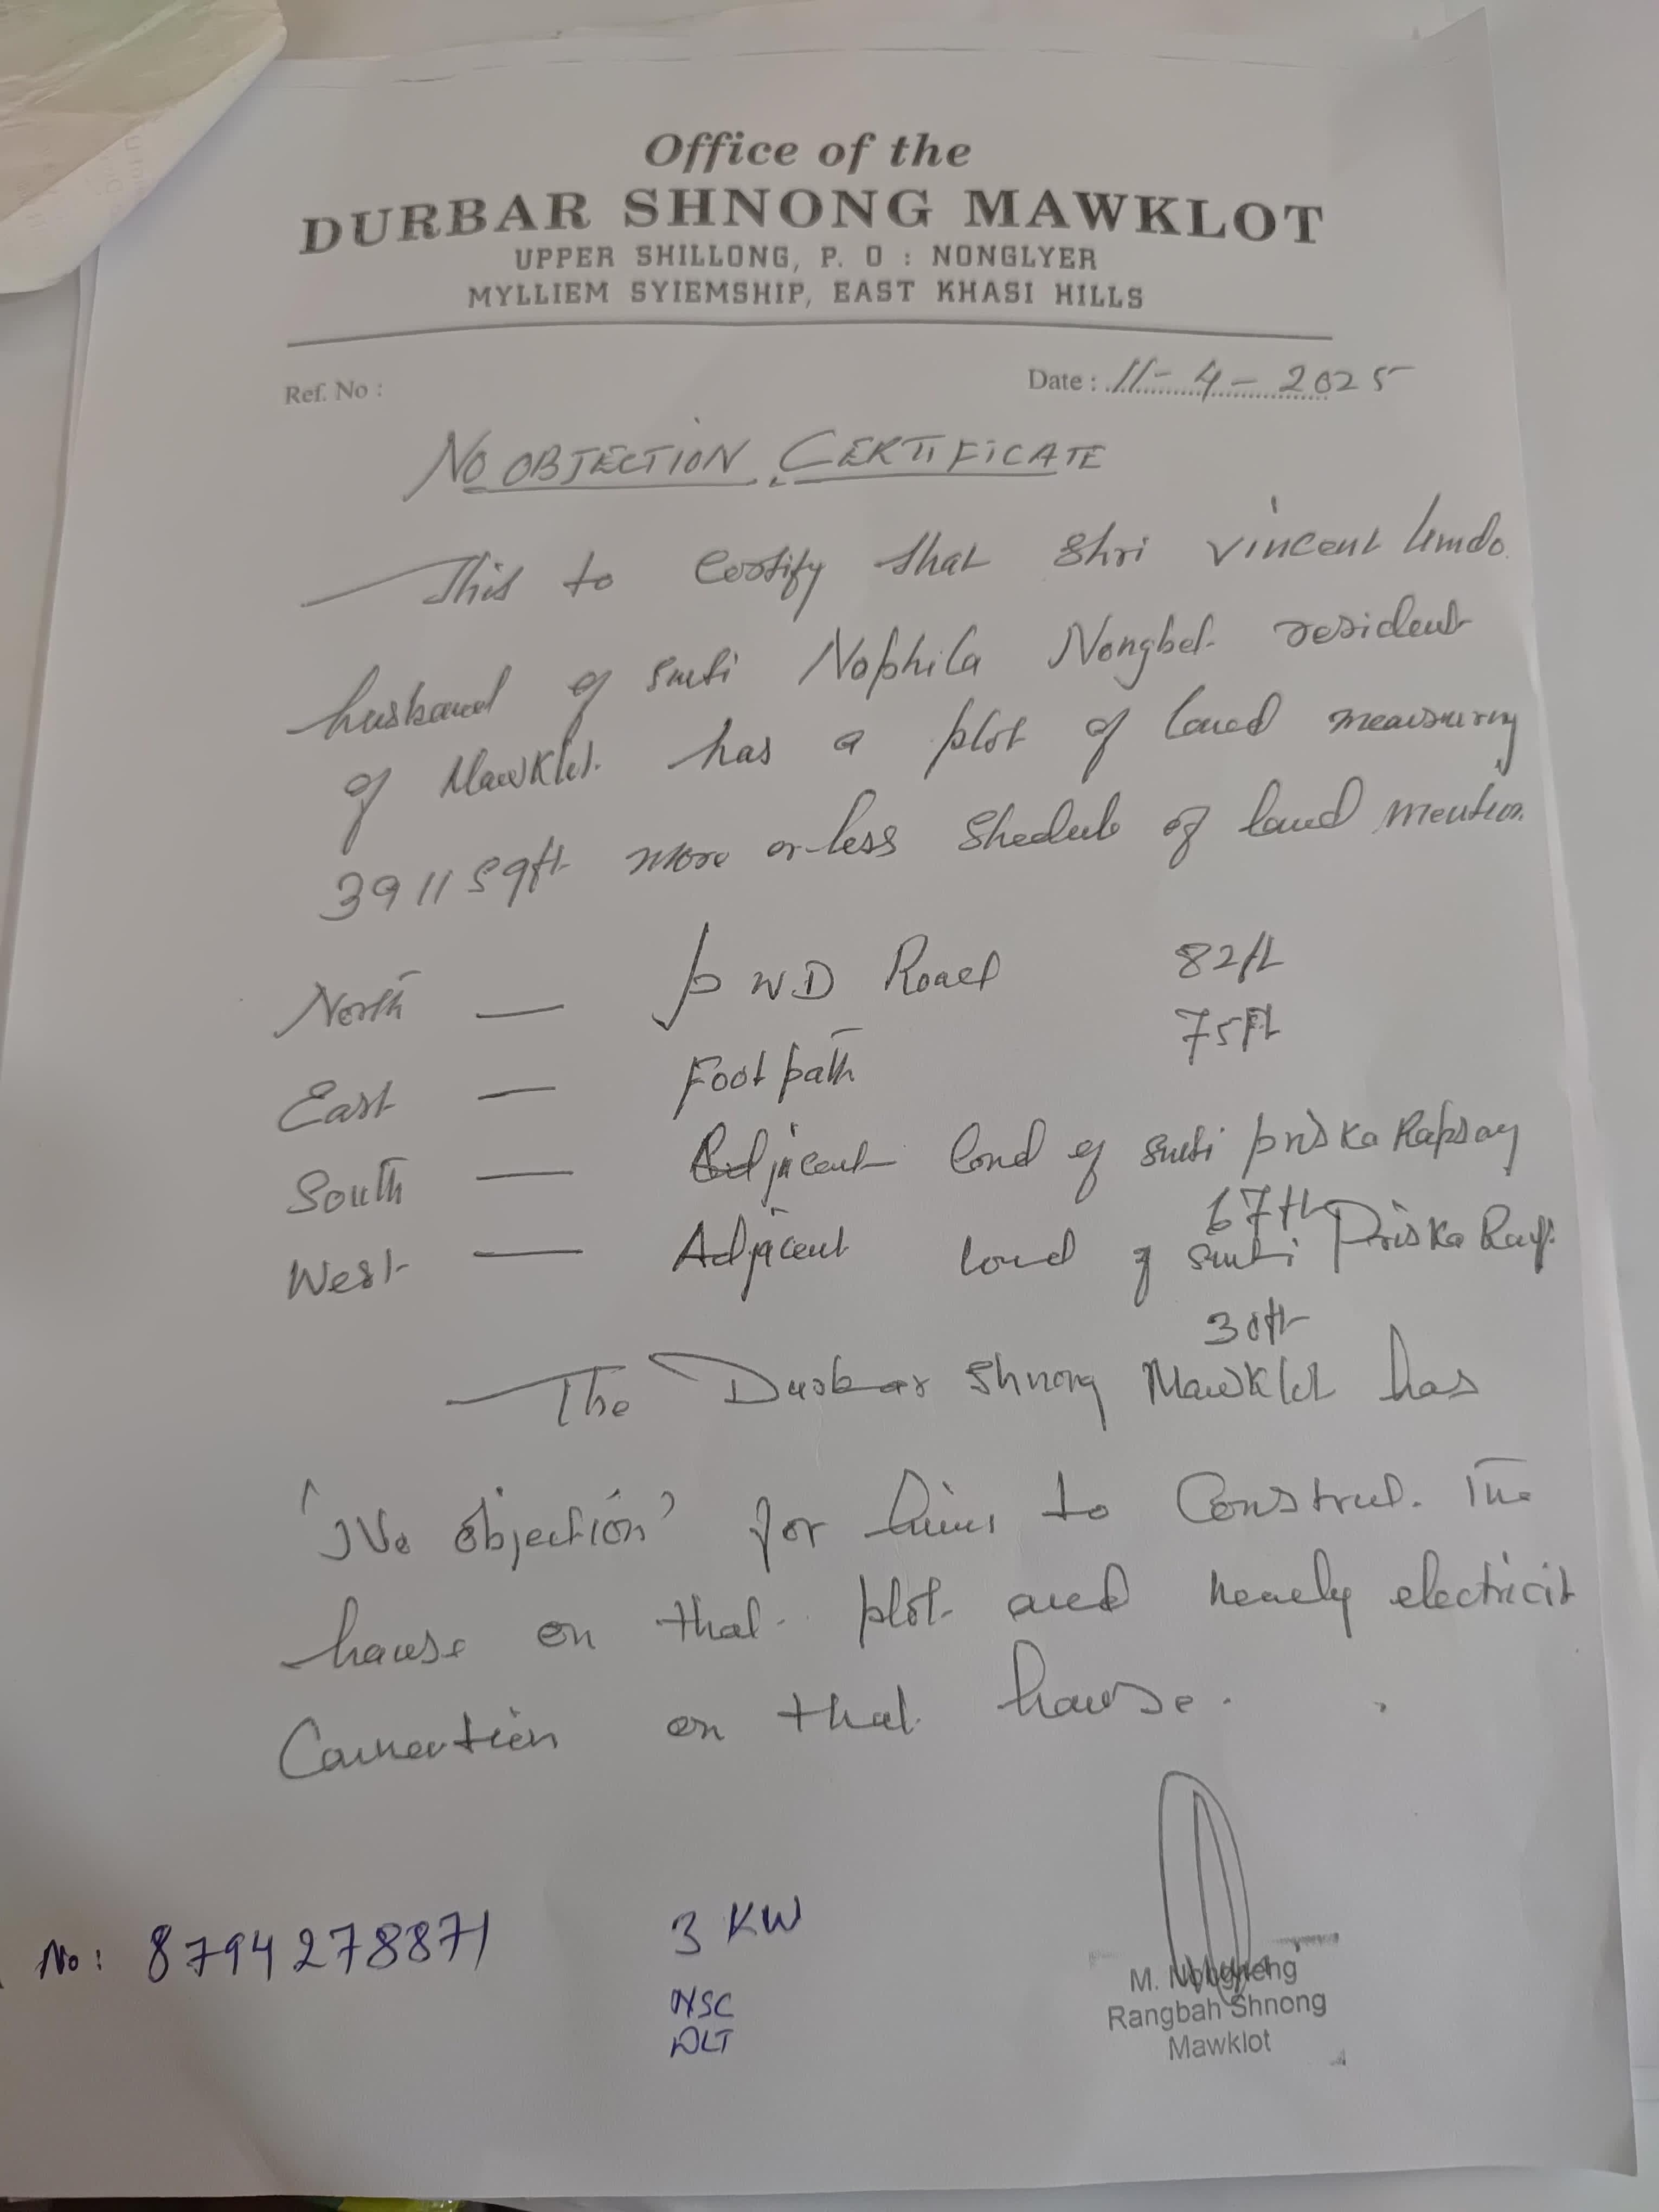 Office of the
DURBAR SHNONG MAWKLOT
UPPER SHILLONG, P. O : NONGLYER
MYLLIEM SYIEMSHIP, EAST KHASI HILLS
Ref. No :
Date : 11-4-2025
NO OBJECTION CERTIFICATE
This to certify that Shri Vincent Umdo
husband of Smti Nophila Nongbet resident
of Mawklot has a plot of land measuring
3911 Sqft more or less Shedule of land mention
North — PWD Road 82ft
East — Foot path 75ft
South — Adjacent land of Smti Priska Rapsay
67ft
West — Adjacent land of Smti Priska Rap.
30ft
The Durbar Shnong Mawklot has
'No objection' for him to Construct. The
house on that plot and newly electricit
Connection on that house.
No: 8794278871
3 KW
NSC
DLT
M. Nongneng
Rangbah Shnong
Mawklot